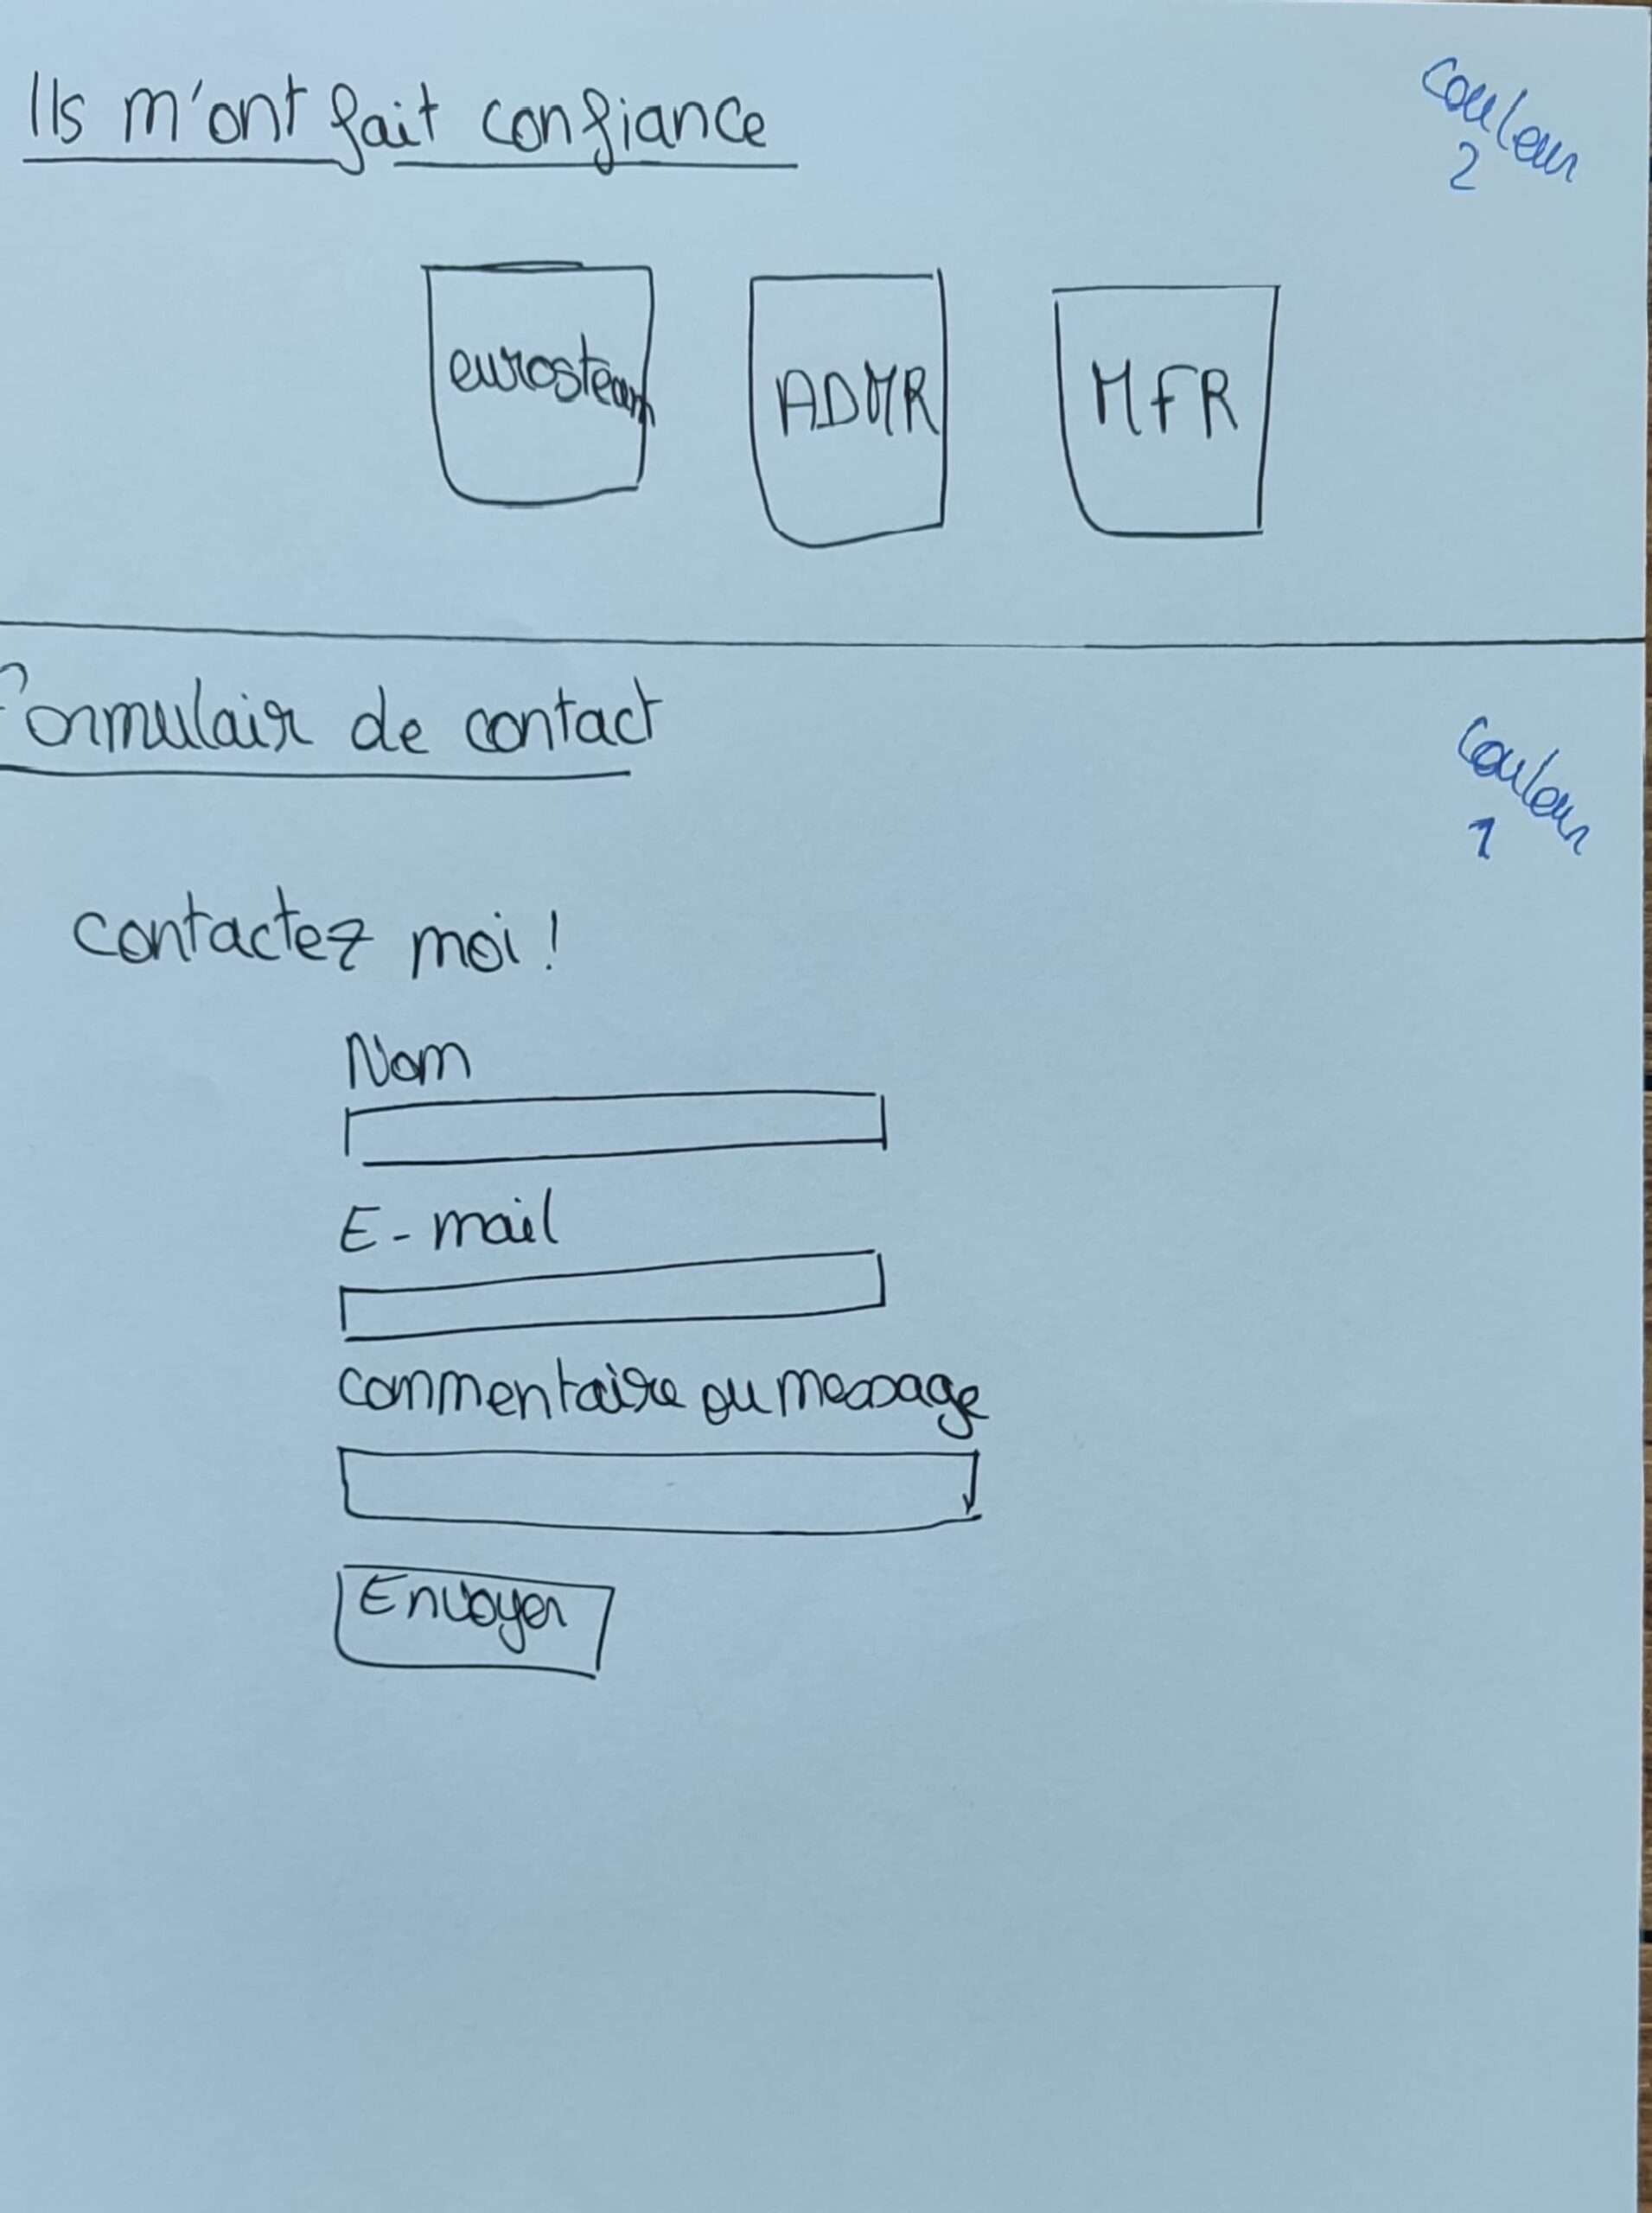 Ils m'ont fait confiance
couleur
2
eurosteam
ADMR
MFR
Formulair de contact
couleur
1
contactez moi !
Nom
E-mail
commentaire ou message
Envoyer